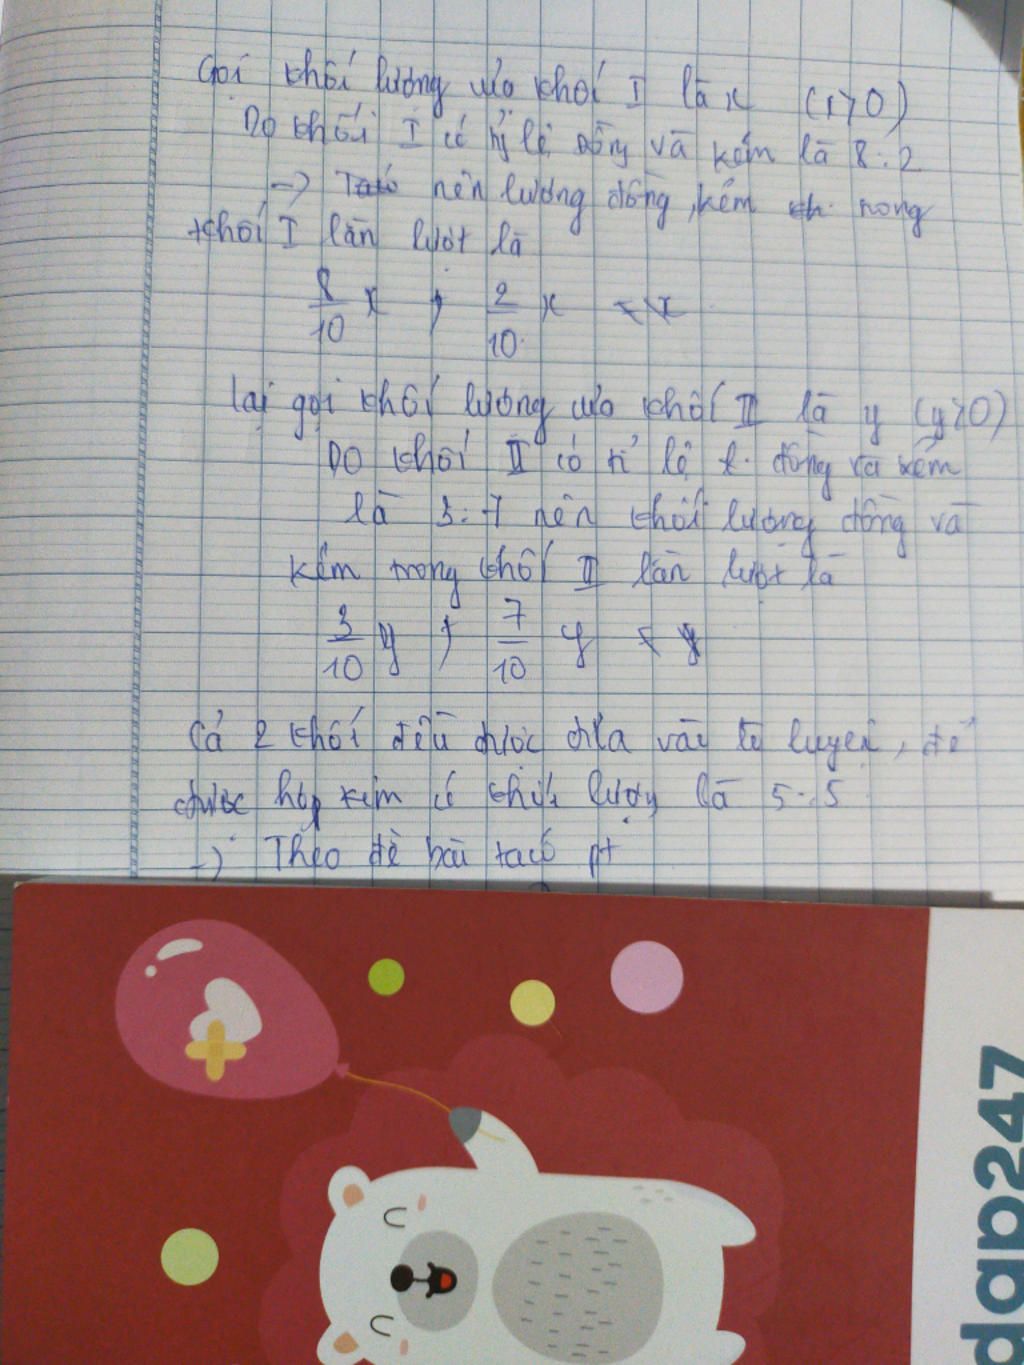 Gọi khối lượng của khối I là x (x>0)
Do khối I có tỷ lệ đồng và kẽm là 8:2
-> Ta có nên lượng đồng, kẽm trong
khối I lần lượt là
8/10 x ; 2/10 x < x
lại gọi khối lượng của khối II là y (y>0)
Do khối II có tỉ lệ đồng và kẽm
là 3:7 nên khối lượng đồng và
kẽm trong khối II lần lượt là
3/10 y ; 7/10 y < y
Cả 2 khối đều được đưa vào lò luyện, để
được hợp kim có khối lượng là 5:5
-> Theo đề bài ta có pt
dap247